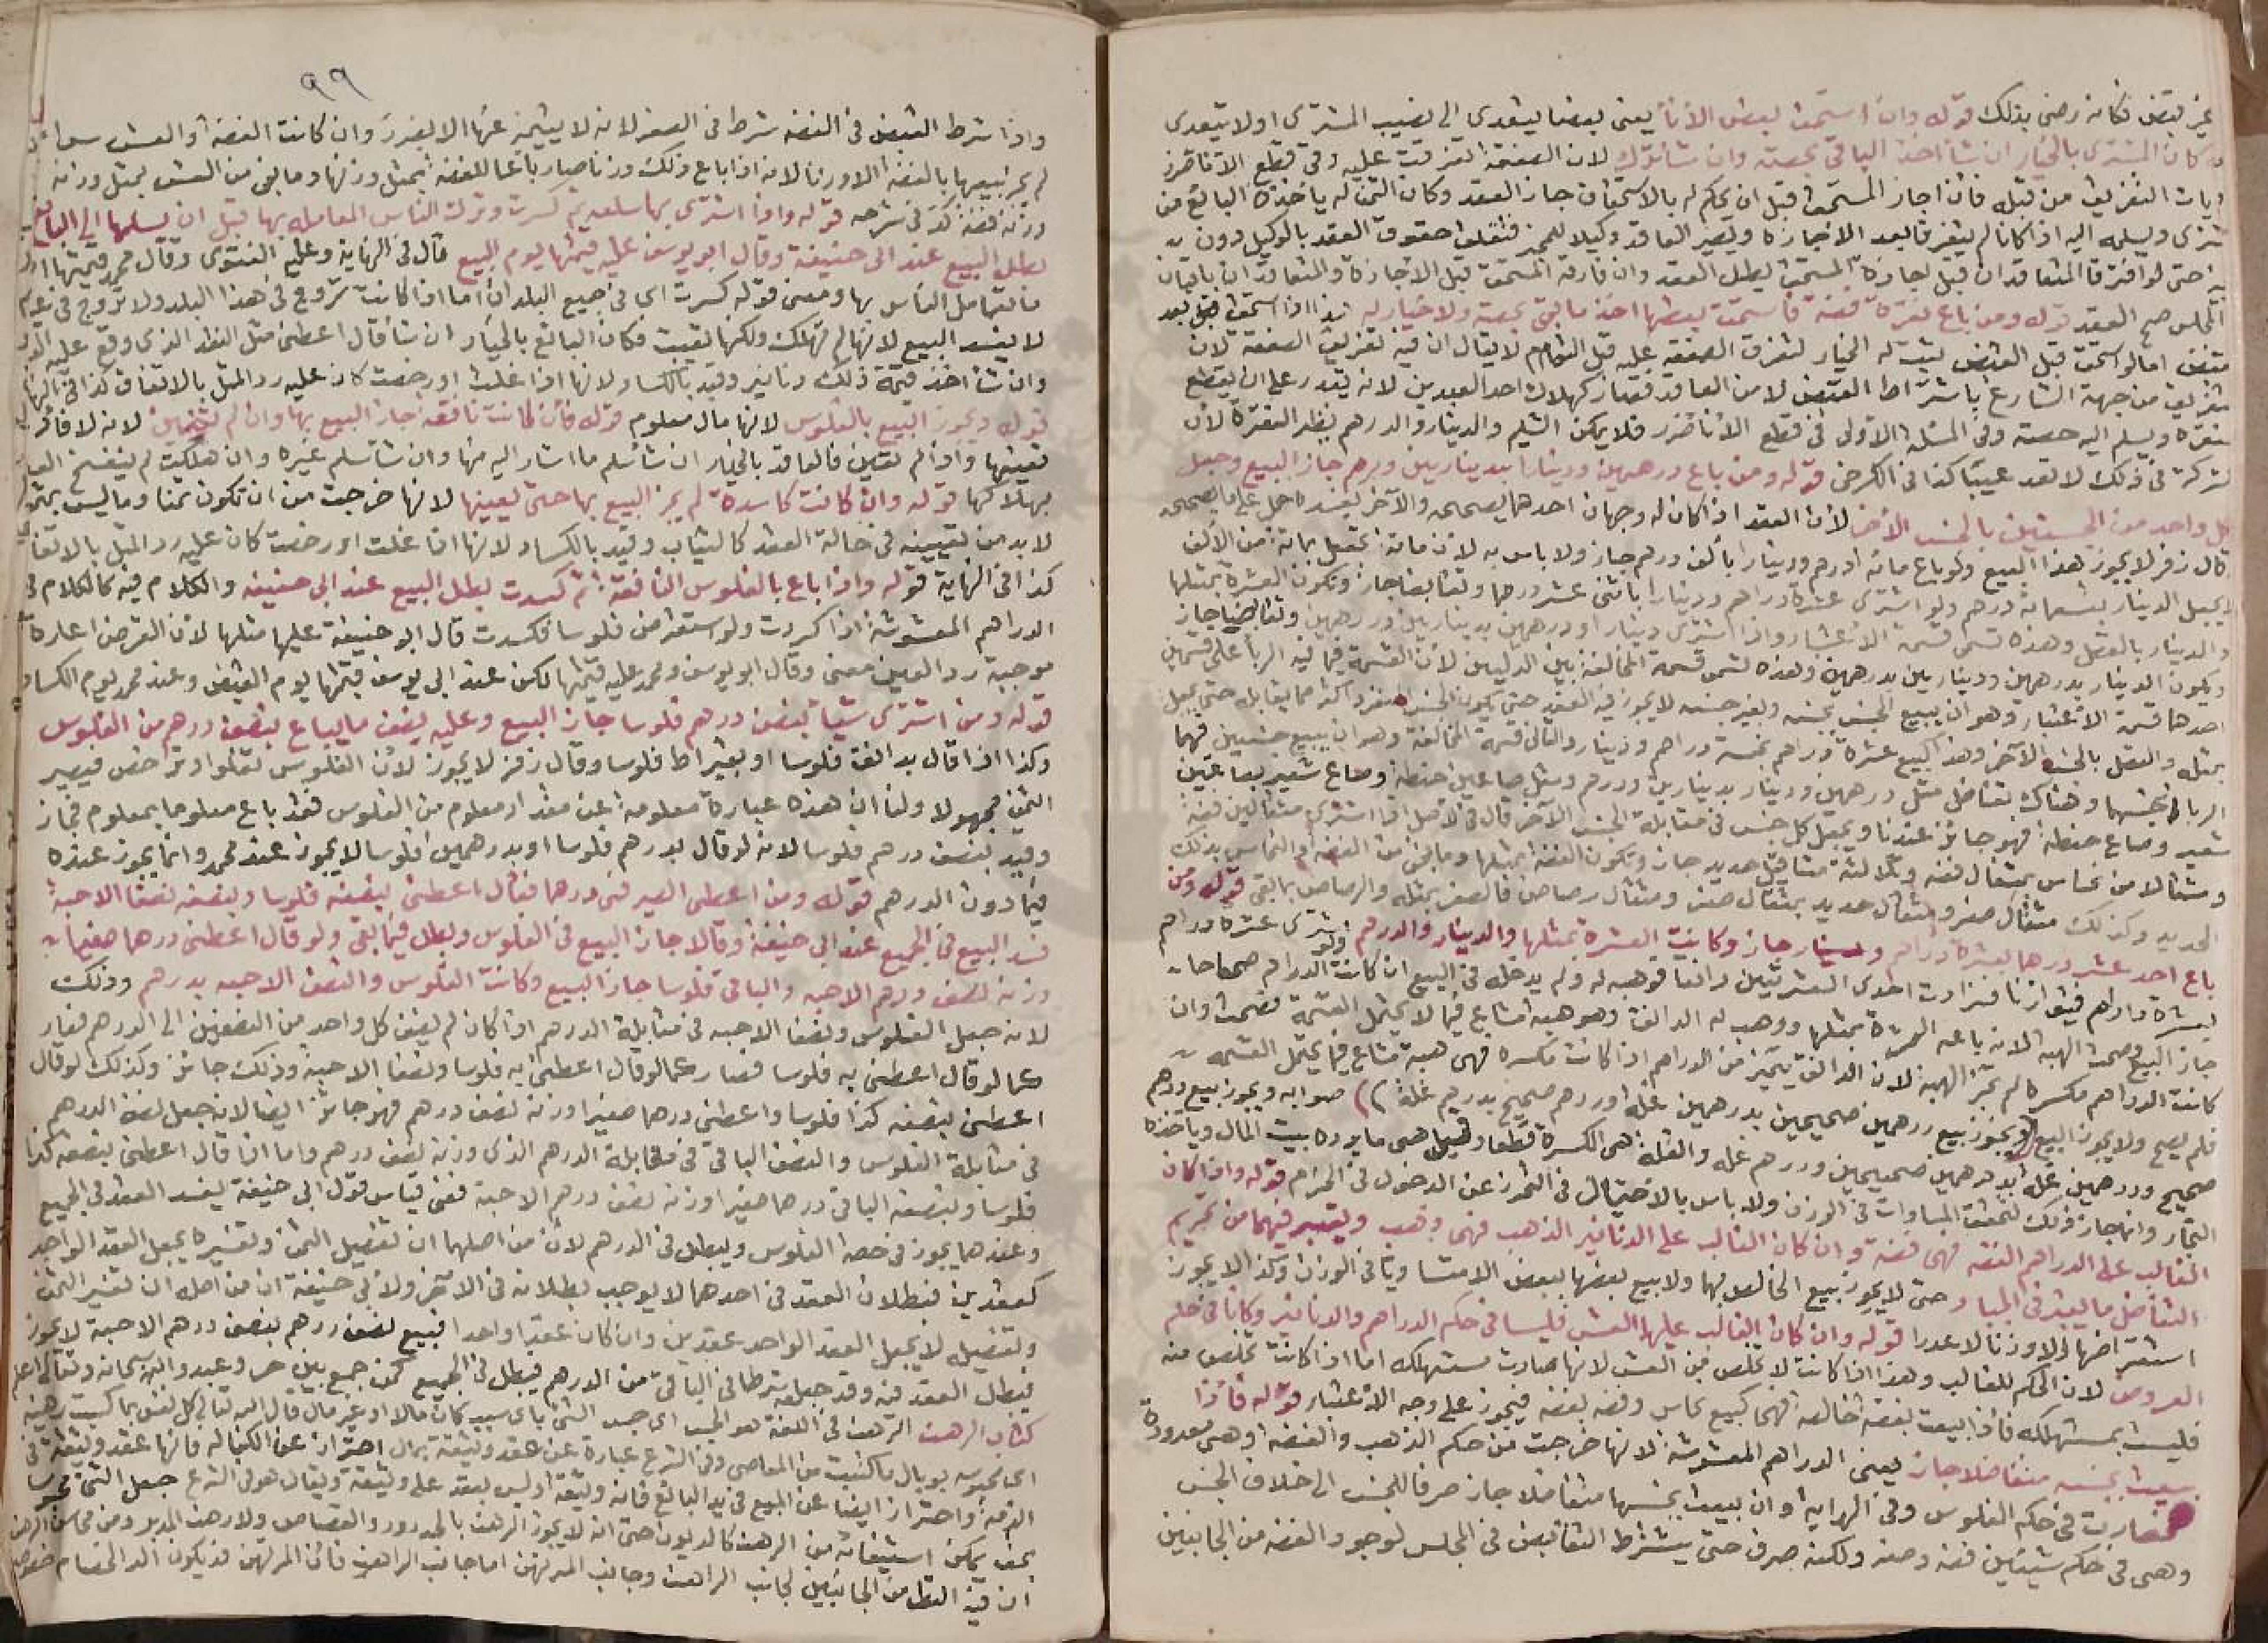 غير قبض فكانه رضي بذلك قوله وان استحق بعض الاناء يعني بعضا يتعدى الى نصيب المشتري او لا يتعدى
كان المشتري بالخيار ان شاء اخذ الباقي بحصته وان شاء ترك لان الصفقة تفرقت عليه وفي قطع الاناء ضرر
ويات التفريق من قبله فان اجاز المستحق قبل ان يحكم له بالاستحقاق جاز العقد وكان الثمن له ياخذه البائع من
المشتري ويسلمه اليه اذا كانا لم يتفرقا بعد الاجازة ويصير العاقد وكيلا للمجيز فتتعلق حقوق العقد بالوكيل دون
حتى لو افترقا المتعاقدان قبل اجازة المستحق بطل العقد وان فارقه المستحق قبل الاجازة والمتعاقدان باقيان
المجلس صح العقد قوله ومن باع نقرة فضة فاستحقت بعضها اخذ ما بقي بحصته ولا خيار له هذا اذا استحق بعد
قبض اما لو استحق قبل القبض يثبت له الخيار لتفرق الصفقة عليه قبل التمام لا يقال ان فيه تفريق الصفقة لان
تفريق من جهة الشارع باشتراط القبض لا من العاقد فصار كهلاك احد العبدين لانه يقدر على ان يقطع
نقرة ويسلم اليه حصته وفي المسئلة الاولى في قطع الاناء ضرر فلا يمكن التسليم والدينار والدرهم نظير النقرة لان
لشركة في ذلك لا تعد عيبا كذا في الكرخي قوله ومن باع درهمين ودينارا بدينارين ودرهم جاز البيع وجعل
كل واحد من الجنسين بالجنس الاخر لان العقد اذا كان له وجهان احدهما يصححه والآخر يفسده حمل على ما يصححه
قال زفر لا يجوز هذا البيع ولو باع مائة درهم ودينارا بألف درهم جاز ولا باس به لان مائة تجعل بمائة من الألف
ويجعل الدينار بتسعمائة درهم ولو اشترى عشرة دراهم ودينارا باثنى عشر درهما وتقابضا جاز وتكون العشرة بمثلها
والدينار بالفضل وهذه تسمى قسمة الاعتبار واذا اشترى دينارا ودرهمين بدينارين ودرهمين وتقابضا جاز
ويكون الدينار بدرهمين ودينارين بدرهمين وهذه تسمى قسمة المخالفة بين البدلين لان القسمة فيما فيه الربا على قسمين
احدهما قسمة الاعتبار وهو ان يبيع الجنس بجنسه وبغير جنسه لا يجوز فيه العقد حتى يكون الجنس المنفرد اكثر مما يقابله حتى يجعل
بمثله والفضل بالجنس الآخر وهذا كبيع عشرة دراهم بخمسة دراهم ودينار والثاني قسمة المخالفة وهو ان يبيع جنسين فيهما
الربا بجنسهما وهناك تفاضل مثل درهمين ودينار بدينارين ودرهم ومثل صاعين حنطة وصاع شعير بصاعين
شعير وصاع حنطة فهو جائز عندنا ويجعل كل جنس في مقابلة الجنس الآخر قال في الاصل اذا اشترى مثقالين فضة
ومثقالا من نحاس بمثقال فضة وثلاثة مثاقيل حديد جاز وتكون الفضة بمثلها وما بقي من الفضة والنحاس بذلك
الحديد وكذلك مثقال صفر ومثقال حديد بمثقال صفر ومثقال رصاص فالصفر بمثله والرصاص بما بقي قوله ومن
باع احد عشر درهما بعشرة دراهم ودينار جاز وكانت العشرة بمثلها والدينار والدرهم ولو اشترى عشرة دراهم
بعشرة دراهم فتوازنا فزادت احدى العشرتين دانقا فوهبه له ولم يدخله في البيع ان كانت الدراهم صحاحا
جاز البيع وصحت الهبة لانه باعه العشرة بمثلها ووهب له الدانق وهو هبة مشاع فيما لا يحتمل القسمة فصحت وان
كانت الدراهم مكسرة لم تجز الهبة لان الدانق يتميز من الدراهم اذا كانت مكسرة فهي هبة مشاع فيما يحتمل القسمة
فلم يصح ولا يجوز البيع ويجوز بيع درهمين صحيحين بدرهمين غلة او درهم صحيح بدرهم غلة صوابه ويجوز بيع درهم
صحيح ودرهمين غلة بدرهمين صحيحين ودرهم غلة والغلة هي المكسرة قطعا وقيل هي ما يرده بيت المال وياخذه
التجار وانما جاز ذلك لتحقق المساواة في الوزن ولا باس بالاحتيال في التحرز عن الدخول في الحرام قوله واذا كان
الغالب على الدراهم الفضة فهي فضة وان كان الغالب على الدنانير الذهب فهي ذهب ويعتبر فيهما من تحريم
التفاضل ما يعتبر في الجياد حتى لا يجوز بيع الخالص بهما ولا بيع بعضها ببعض الا متساويا في الوزن وكذا لا يجوز
استقراضها الا وزنا لا عددا قوله وان كان الغالب عليها الغش فليسا في حكم الدراهم والدنانير وكانا في حكم
العروض لان الحكم للغالب وهذا اذا كانت لا تخلص من الغش لانها صارت مستهلكة اما اذا كانت تخلص منه
فليست بمستهلكة فاذا بيعت بفضة خالصة فهي كبيع نحاس وفضة بفضة فيجوز على وجه الاعتبار قوله فاذا
بيعت بجنسه متفاضلا جاز يعني الدراهم المغشوشة لانها خرجت من حكم الذهب والفضة وهي معدودة
فصارت في حكم الفلوس وفي الهداية وان بيعت بجنسها متفاضلا جاز صرفا للجنس الى خلاف الجنس
وهي في حكم شيئين فضة وصفر ولكنه صرف حتى يشترط التقابض في المجلس لوجود الفضة من الجانبين
٩٩
واذا شرط القبض في الفضة شرط في الصفر لانه لا يتميز عنها الا بضرر وان كانت الفضة والغش سواء
لم يجز بيعها بالفضة الا وزنا لانه اذا باع ذلك وزنا صار بائعا للفضة بمثل وزنها وما بقي من الغش بمثل وزنه
وزنه فضة كذا في شرحه قوله واذا اشترى بها سلعة ثم كسدت وترك الناس المعاملة بها قبل ان يسلمها الى البائع
بطل البيع عند ابي حنيفة وقال ابو يوسف عليه قيمتها يوم البيع قال في النهاية وعليه الفتوى وقال محمد قيمتها اخر
ما تعامل الناس بها ومعنى قوله كسدت اي في جميع البلدان اما اذا كانت تروج في هذا البلد ولا تروج في غيره
لا يفسد البيع لانها لم تهلك ولكنها تعيبت فكان البائع بالخيار ان شاء قال اعطني مثل النقد الذي وقع عليه العقد
وان شاء اخذ قيمة ذلك دنانير وقيد بالكساد لانها اذا غلت او رخصت كان عليه رد المثل بالاتفاق كذا في النهاية
قوله ويجوز البيع بالفلوس لانها مال معلوم قوله فان كانت نافقة جاز البيع بها وان لم تتعين لانه لا فائدة في
تعيينها واذا لم تتعين فالعاقد بالخيار ان شاء سلم ما اشار اليه منها وان شاء سلم غيره وان هلكت لم ينفسخ العقد
بهلاكها قوله وان كانت كاسدة لم يجز البيع بها حتى يعينها لانها خرجت من ان تكون ثمنا وما ليس بثمن
لا بد من تعيينه في حالة العقد كالثياب وقيد بالكساد لانها اذا غلت او رخصت كان عليه رد المثل بالاتفاق
كذا في النهاية قوله واذا باع بالفلوس النافقة ثم كسدت بطل البيع عند ابي حنيفة والكلام فيه كالكلام في
الدراهم المغشوشة اذا كسدت ولو استقرض فلوسا فكسدت قال ابو حنيفة عليه مثلها لان القرض اعارة
موجبة رد العين معنى وقال ابو يوسف ومحمد عليه قيمتها لكن عند ابي يوسف قيمتها يوم القبض وعند محمد يوم الكساد
قوله ومن اشترى شيئا بنصف درهم فلوسا جاز البيع وعليه نصف ما يباع بنصف درهم من الفلوس
وكذا اذا قال بدانق فلوسا او بقيراط فلوسا وقال زفر لا يجوز لان الفلوس تغلوا وترخص فيصير
الثمن مجهولا ولنا ان هذه عبارة معلومة عن مقدار معلوم من الفلوس فقد باع معلوما بمعلوم فجاز
وقيد بنصف درهم فلوسا لانه لو قال بدرهم فلوسا او بدرهمين فلوسا لا يجوز عند محمد وانما يجوز عنده
فيما دون الدرهم قوله ومن اعطى الصيرفي درهما فقال اعطني بنصفه فلوسا وبنصفه نصفا الا حبة
فسد البيع في الجميع عند ابي حنيفة وقالا جاز البيع في الفلوس وبطل فيما بقي ولو قال اعطني درهما صغيرا
وزنه نصف درهم الا حبة والباقي فلوسا جاز البيع وكانت الفلوس والنصف الا حبة بدرهم وذلك
لانه جعل الفلوس ونصفا الا حبة في مقابلة الدرهم اذا كان لم يضف كل واحد من النصفين الى الدرهم فصار
كما لو قال اعطني به فلوسا فصار كما لو قال اعطني به فلوسا ونصفا الا حبة وذلك جائز وكذلك لو قال
اعطني بنصفه كذا فلوسا واعطني درهما صغيرا وزنه نصف درهم فهو جائز ايضا لانه جعل نصف الدرهم
في مقابلة الفلوس والنصف الباقي في مقابلة الدرهم الذي وزنه نصف درهم واما اذا قال اعطني بنصفه كذا
فلوسا وبنصفه الباقي درهما صغيرا وزنه نصف درهم الا حبة فعلى قياس قول ابي حنيفة يفسد العقد في الجميع
وعندهما يجوز في حصة الفلوس ويبطل في الدرهم لان من اصلهما ان تفصيل الثمن وتفسيره يجعل العقد الواحد
كعقدين فبطلان العقد في احدهما لا يوجب بطلانه في الآخر ولابي حنيفة ان من اصله ان تفسير الثمن
وتفصيله لا يجعل العقد الواحد عقدين وان كان عقدا واحدا فبيع نصف درهم بنصف درهم الا حبة لا يجوز
فبطل العقد فيه وقد جعله شرطا في الباقي من الدرهم فيبطل في الجميع كمن جمع بين حر وعبد والله سبحانه وتعالى اعلم
كتاب الرهن الرهن في اللغة هو الحبس اي حبس الشئ باي سبب كان مالا او غير مال قال الله تعالى كل نفس بما كسبت رهينة
اي محبوسة بوبال ما كسبت من المعاصي وفي الشرع عبارة عن عقد وثيقة بمال احترازا عن الكفالة فانها عقد وثيقة في
الذمة واحترازا ايضا عن المبيع في يد البائع فانه وثيقة وليس بعقد على وثيقة ويقال هو في الشرع جعل الشئ محبوسا
بحق يمكن استيفائه من الرهن كالديون حتى انه لا يجوز الرهن بالحدود والقصاص ولا رهن المدبر ومن محاسن الرهن
ان فيه النظر من الجانبين لجانب الراهن وجانب المرتهن اما جانب الراهن فان المرتهن قد يكون الد الخصام